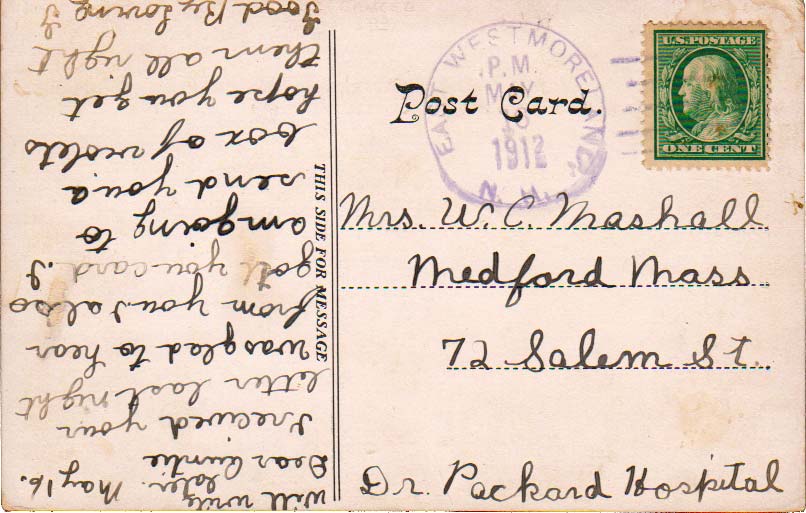 Post Card.
EAST WESTMORELAND,
P.M.
MAY
1912
N. H.
U.S. POSTAGE
ONE CENT
Mrs. W. C. Mashall
Medford Mass
72 Salem St.
Dr. Packard Hospital
THIS SIDE FOR MESSAGE
will write
later. May 16.
Dear Auntie
I recived your
letter last night
was glad to hear
from you. I also
gott you card. I
am going to
send you a
box of violets
hope you get
them all right
Good By Loving